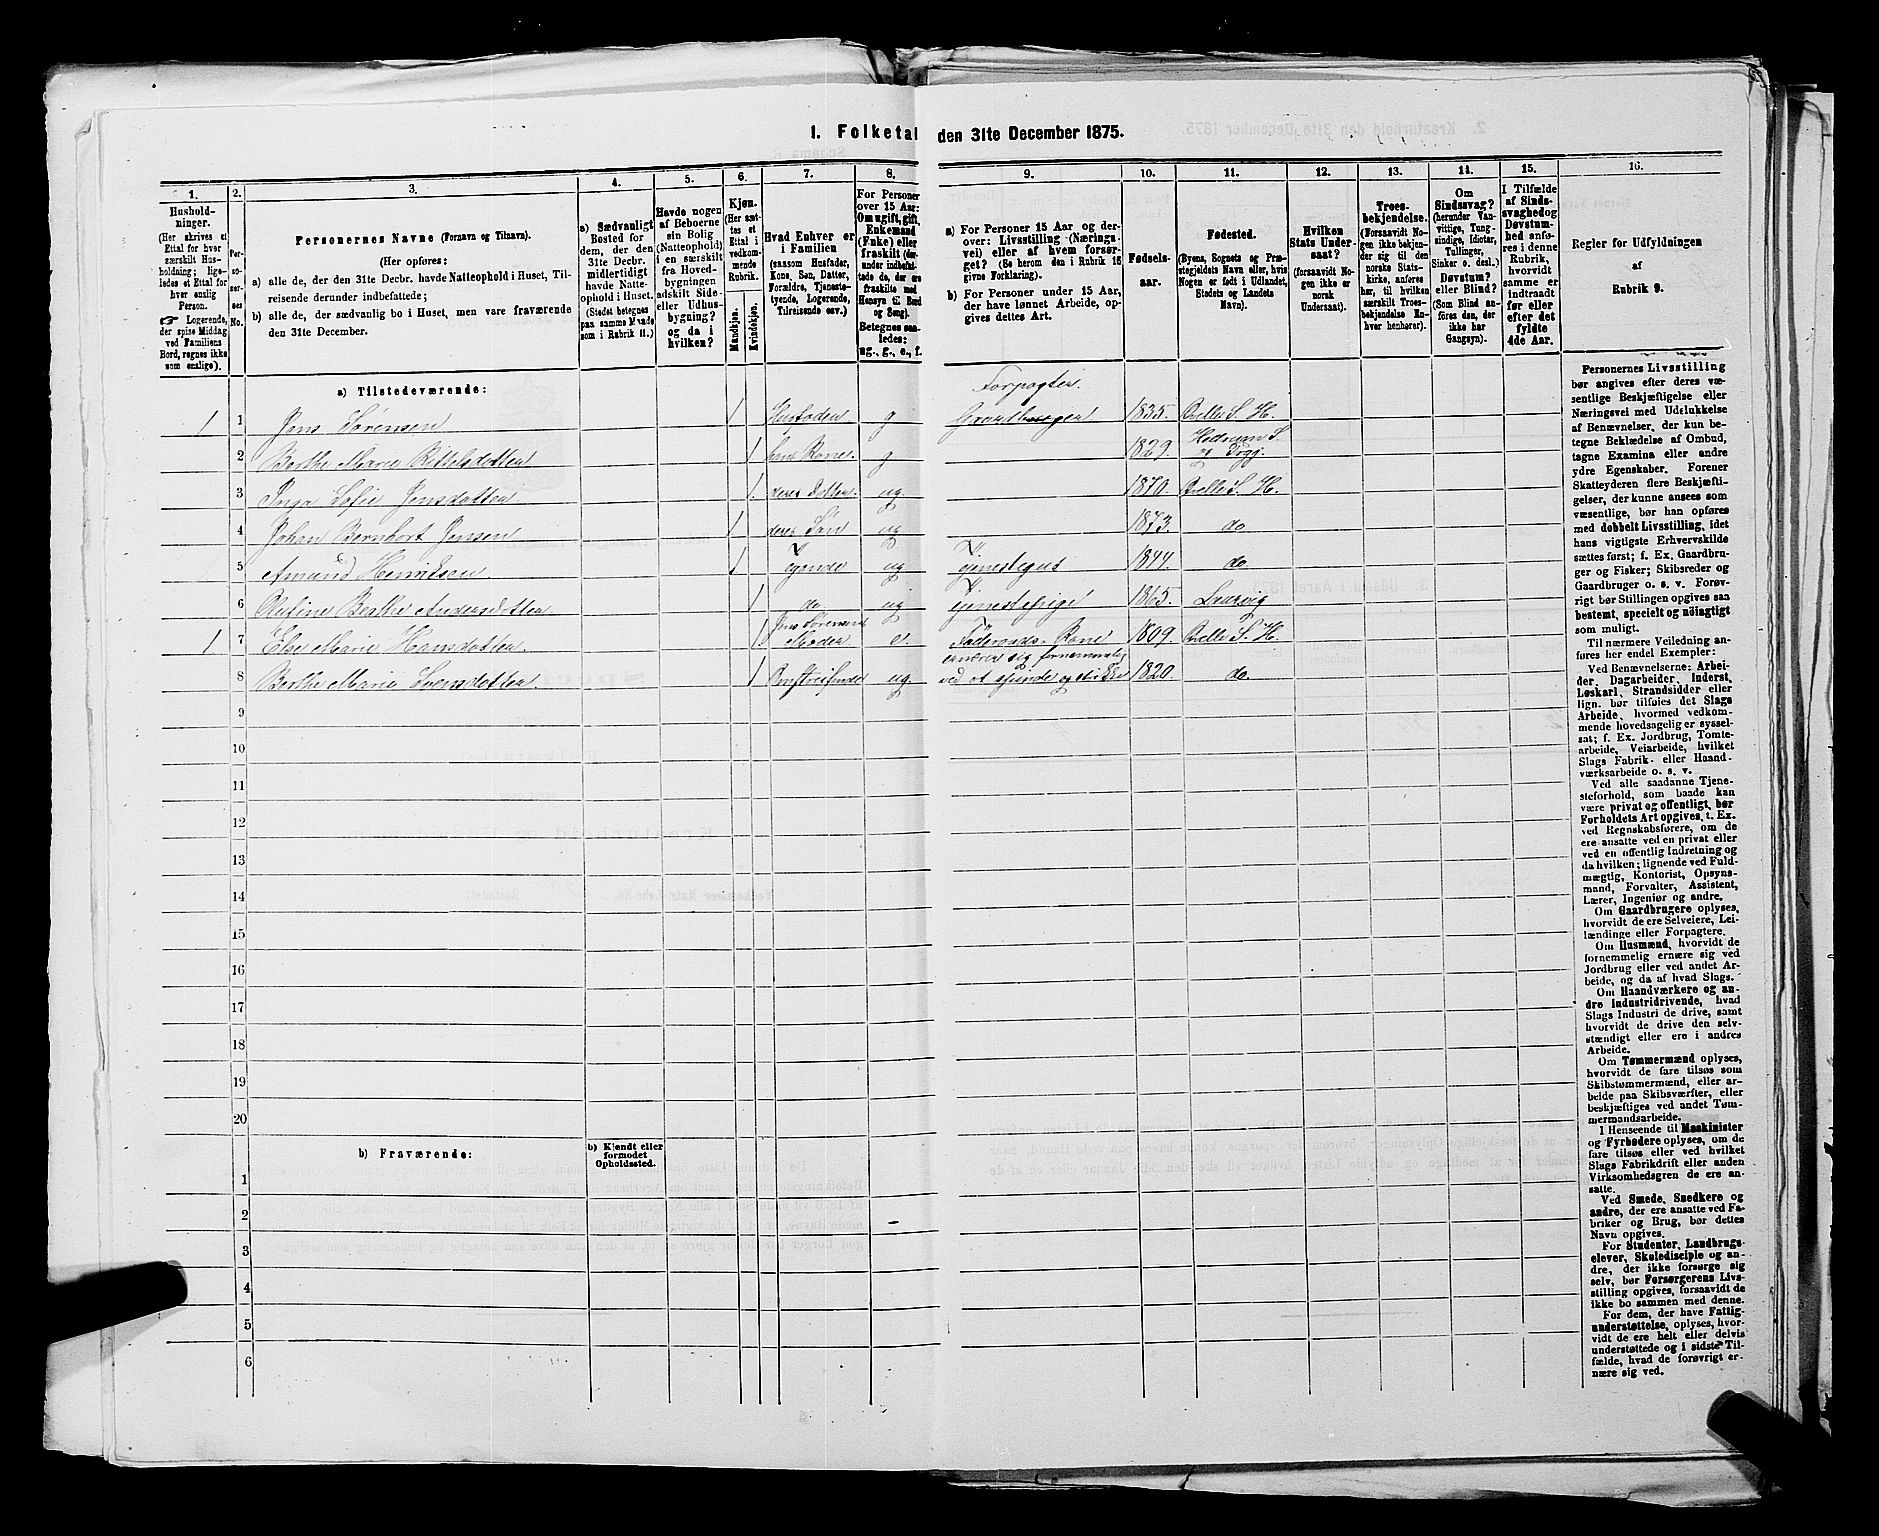 1. Folketal den 31te December 1875.
1.
2.
3.
4.
5.
6.
7.
8.
9.
10.
11.
12.
13.
14.
15.
16.
Hushold-
ninger.
(Her skrives et
Ettal for hver
særskilt Hus-
holdning; lige-
ledes et Ettal for
hver enslig
Person.
☞ Logerende,
der spise Middag
ved Familiens
Bord, regnes ikke
som enslige).
Per-
so-
ner-
nes
No.
Personernes Navne (Fornavn og Tilnavn).
(Her opføres:
a) alle de, der den 31te Decbr. havde Natteophold i Huset, Til-
reisende derunder indbefattede;
b) alle de, der sædvanlig bo i Huset, men vare fraværende
den 31te December.
a) Sædvanligt
Bosted for
dem, der den
31te Decbr.
midlertidigt
havde Natte-
ophold i Huset.
(Stedet betegnes
paa samme Maade
som i Rubrik 11.)
Havde nogen
af Beboerne
sin Bolig
(Natteophold)
i en særskilt
fra Hoved-
bygningen
adskilt Side-
eller Udhus-
bygning?
og da i
hvilken?
Kjøn.
(Her sæt-
tes et
Ettal i
vedkom-
mende
Rubrik.
Mandkjøn.
Kvindekjøn.
Hvad Enhver er
i Familien
(saasom Husfader,
Kone, Søn, Datter,
Forældre, Tjeneste-
tyende, Logerende,
Tilreisende osv.)
For Personer
over 15 Aar:
Om ugift, gift,
Enkemand
(Enke) eller
fraskilt (der-
under indbefat-
tede de, der ere
fraskilte med
Hensyn til Bord
og Seng).
Betegnes saa-
ledes:
ug., g., e., f.
a) For Personer 15 Aar og der-
over: Livsstilling (Nærings-
vei) eller af hvem forsør-
get? (Se herom den i Rubrik 16
givne Forklaring).
b) For Personer under 15 Aar,
der have lønnet Arbeide, op-
gives dettes Art.
Fødsels-
aar.
Fødested.
(Byens, Sognets og Præ-
stegjeldets Navn eller, hvis
Nogen er født i Udlandet,
Stedets og Landets
Navn).
Hvilken
Stats Under-
saat?
(forsaavidt No-
gen ikke er
norsk
Undersaat).
Troes-
bekjendelse.
(Forsaavidt No-
gen ikke bekjen-
der sig til den
norske Stats-
kirke, anføres
her, til hvilken
særskilt Troes-
bekjendelse En-
hver henhører).
Om
Sindssvag?
(herunder Van-
vittige, Tung-
sindige, Idioter,
Tullinger,
Sinker o. desl.)
Døvstum?
eller Blind?
(Som Blind an-
føres den, der
ikke har
Gangsyn).
I Tilfælde
af Sinds-
svaghed og
Døvstum-
hed anfø-
res i denne
Rubrik,
hvorvidt
samme er
indtraadt
før eller
efter det
fyldte
4de Aar.
Regler for Udfyldningen
af
Rubrik 9.
a) Tilstedeværende:
Forpagter
1 1 Jens Sørensen 1 Husfader g Gaardbruger 1835. S. H.
2 Berthe Marie 1 hans Kone g 1829. Hedrum S. og Prgj.
3 Inga Sofie Jensdatter 1 deres Datter ug. 1870. S. H.
4 Johan Bernhart Jensen 1 deres Søn ug 1873. do
5 Amund Henriksen 1 ug Tjenestegut 1844. do.
6 Berthe Andersdatter 1 do. ug Tjenestepige 1865. Laurvig
1 7 Else Marie Hansdatter 1 Jens Sørensens Moder e. Føderaads-Kone 1809. S. H.
8 Berthe Marie 1 ug. ernærer sig fornemmelig ved at spinde og strikke 1820. do.
9
10
11
12
13
14
15
16
17
18
19
20
b) Fraværende:
b) Kjendt eller
formodet
Opholdssted.
1
2
3
4
5
6
Personernes Livsstilling
bør angives efter deres væ-
sentlige Beskjæftigelse eller
Næringsvei med Udelukkelse
af Benævnelser, der kun be-
tegne Beklædelse af Ombud,
tagne Examina eller andre
ydre Egenskaber. Forener
Skatteyderen flere Beskjæfti-
gelser, der kunne ansees som
væsentlige, bør han opføres
med dobbelt Livsstilling, idet
hans vigtigste Erhvervskilde
sættes først; f. Ex. Gaardbru-
ger og Fisker; Skibsreder og
Gaardbruger o. s. v. Forøv-
rigt bør Stillingen opgives saa
bestemt, specielt og nöiagtigt
som muligt.
Til nærmere Veiledning an-
føres her endel Exempler:
Ved Benævnelserne: Arbei-
der, Dagarbeider, Inderst,
Løskarl, Strandsidder eller
lign. bør tilføies det Slags
Arbeide, hvormed vedkom-
mende hovedsagelig er syssel-
sat; f. Ex. Jordbrug, Tomte-
arbeide, Veiarbeide, hvilket
Slags Fabrik- eller Haand-
værksarbeide o. s. v.
Ved alle saadanne Tjene-
steforhold, som baade kan
være privat og offentligt, bør
Forholdets Art opgives, t. Ex.
ved Regnskabsførere, om de
ere ansatte ved en privat eller
ved en offentlig Indretning og
da hvilken; lignende ved Fuld-
mægtig, Kontorist, Opsyns-
mand, Forvalter, Assistent,
Lærer, Ingeniør og andre.
Om Gaardbrugere oplyses,
hvorvidt de ere Selveiere, Lei-
lændinge eller Forpagtere.
Om Husmænd, hvorvidt de
fornemmelig ernære sig ved
Jordbrug eller ved andet Ar-
beide, og da af hvad Slags.
Om Haandværkere og an-
dre Industridrivende, hvad
Slags Industri de drive, samt
hvorvidt de drive den selv-
stændigt eller ere i andres
Arbeide.
Om Tømmermænd oplyses,
hvorvidt de fare tilsøs som
Skibstømmermænd, eller ar-
beide paa Skibsværfter, eller
beskjæftiges ved andet Tøm-
mermandsarbeide.
I Henseende til Maskinister
og Fyrbødere oplyses, om de
fare tilsøs eller ved hvilket
Slags Fabrikdrift eller anden
Virksomhedsgren de ere an-
satte.
Ved Smede, Snedkere og
andre, der ere ansatte ved Fa-
briker og Brug, bør dettes
Navn opgives.
For Studenter, Landbrugs-
elever, Skoledisciple og an-
dre, der ikke forsørge sig
selv, bør Forsørgerens Livs-
stilling opgives, forsaavidt de
ikke bo sammen med denne.
For dem, der have Fattig-
understøttelse, oplyses, hvor-
vidt de ere helt eller delvis
understøttede og i sidste Til-
fælde, hvad de forøvrigt er-
nære sig ved.